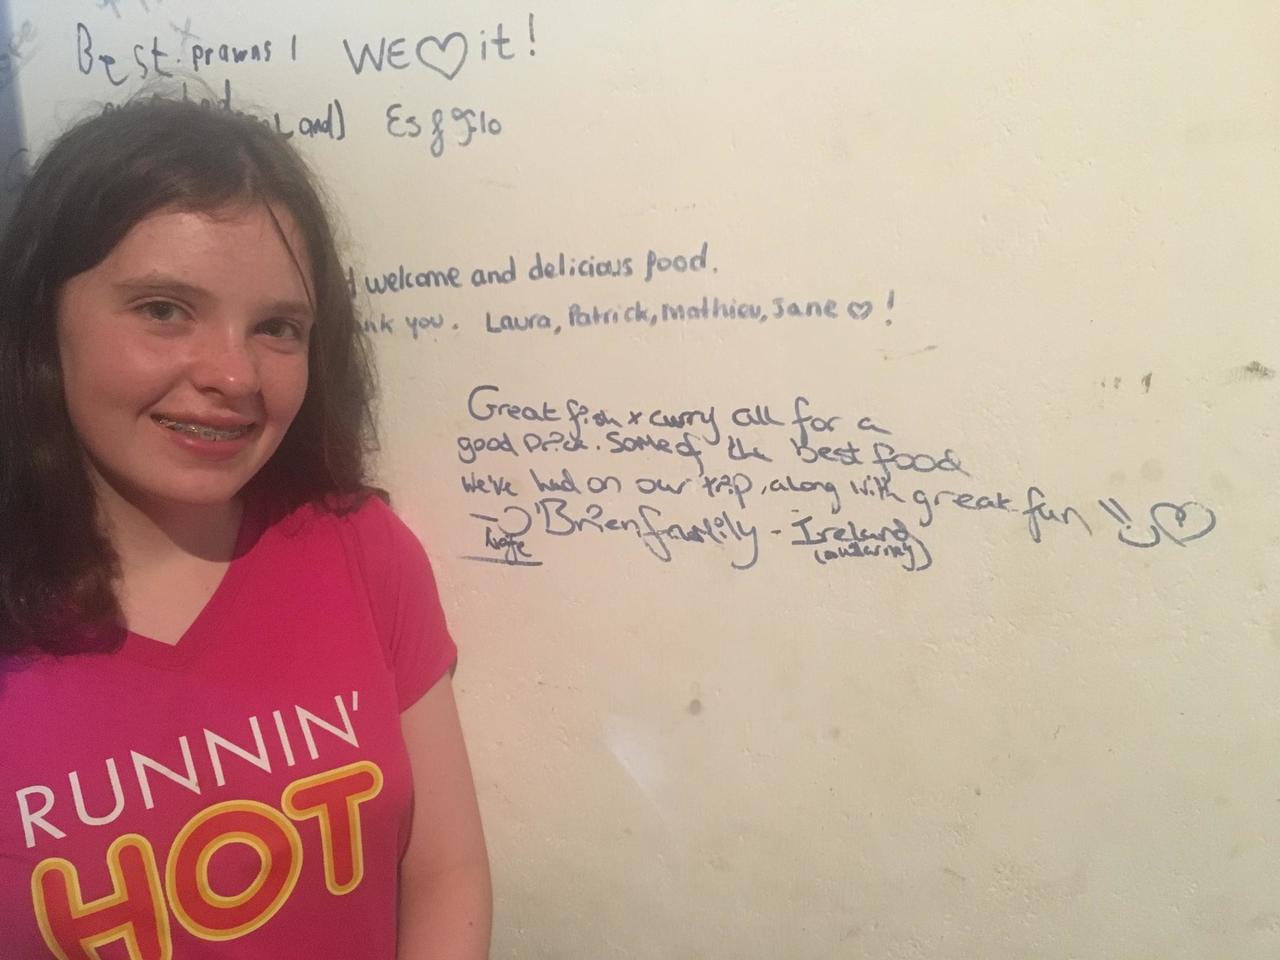 Best prawns! WE ♡ it!
Land) Es & Flo
welcome and delicious food.
ank you. Laura, Patrick, Mathieu, Jane ♡!
Great fish & curry all for a
good price. Some of the best food
we've had on our trip, along with great fun
O'Brien family - Ireland
RUNNIN'
HOT